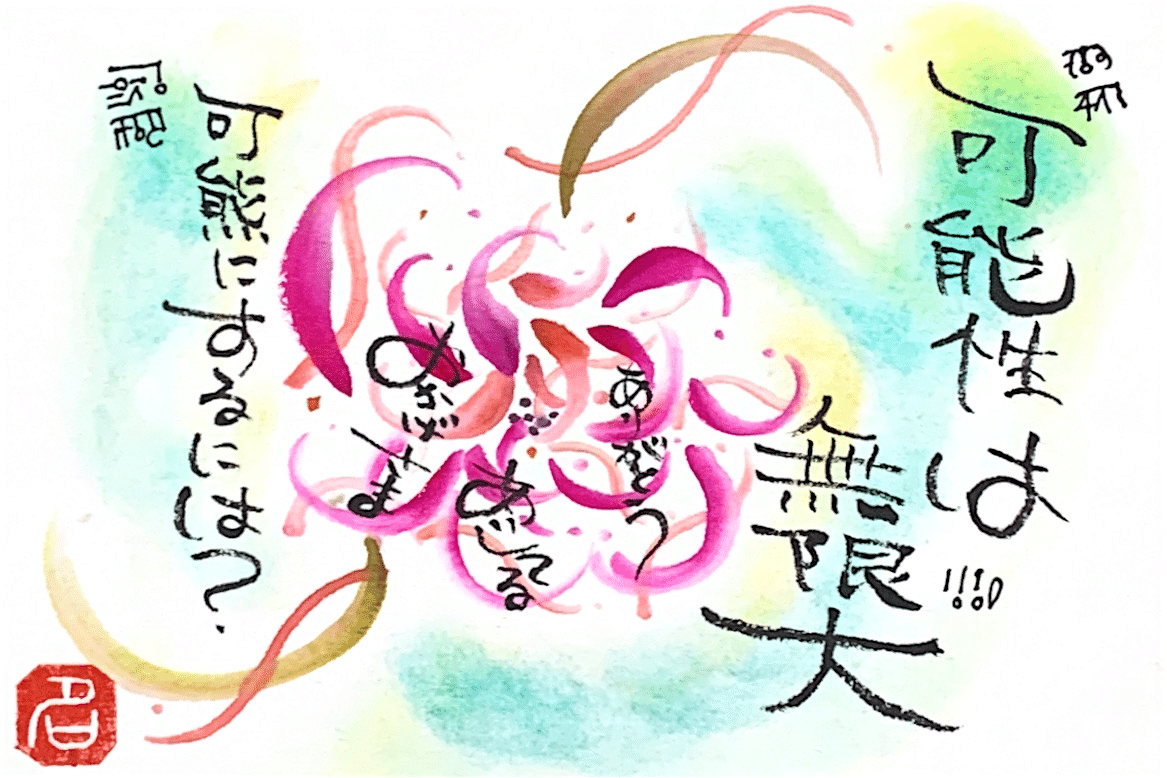 可能性は
無限大
!!!
ありがとう
あいしてる
おかげさま
可能にするには?